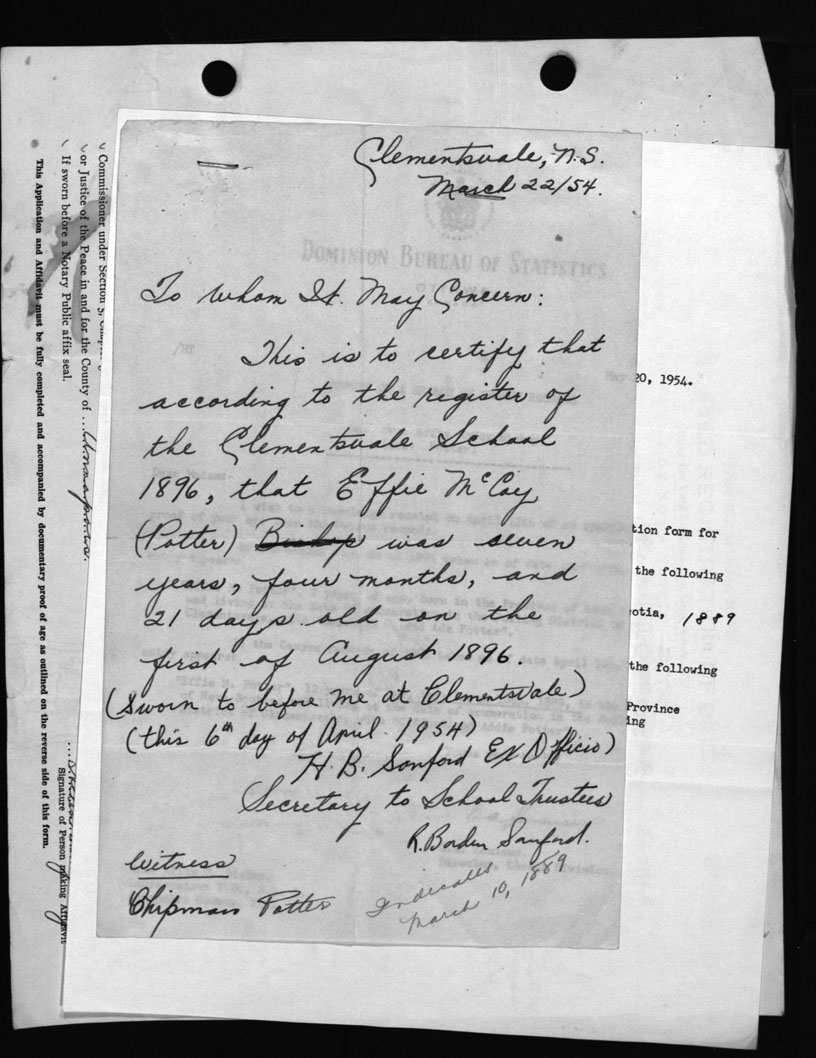 Clementsvale, N.S.
March 22/54.
DOMINION BUREAU OF STATISTICS
To Whom It May Concern:
This is to certify that
according to the register of
the Clementsvale School
1896, that Effie McCoy
(Potter) Bishop was seven
years, four months, and
21 days old on the
first of August 1896.
(Sworn to before me at Clementsvale)
(this 6th day of April 1954)
H. B. Sanford Ex Officio)
Secretary to School Trustees
R. Borden Sanford.
Witness
Chipman Potter
Indicates
March 10, 1889
20, 1954.
tion form for
the following
otia, 1889
the following
Province
ing
Commissioner under Section
or Justice of the Peace in and for the County of ... Annapolis.
If sworn before a Notary Public affix seal.
Signature of Person making Affidavit
This Application and Affidavit must be fully completed and accompanied by documentary proof of age as outlined on the reverse side of this form.